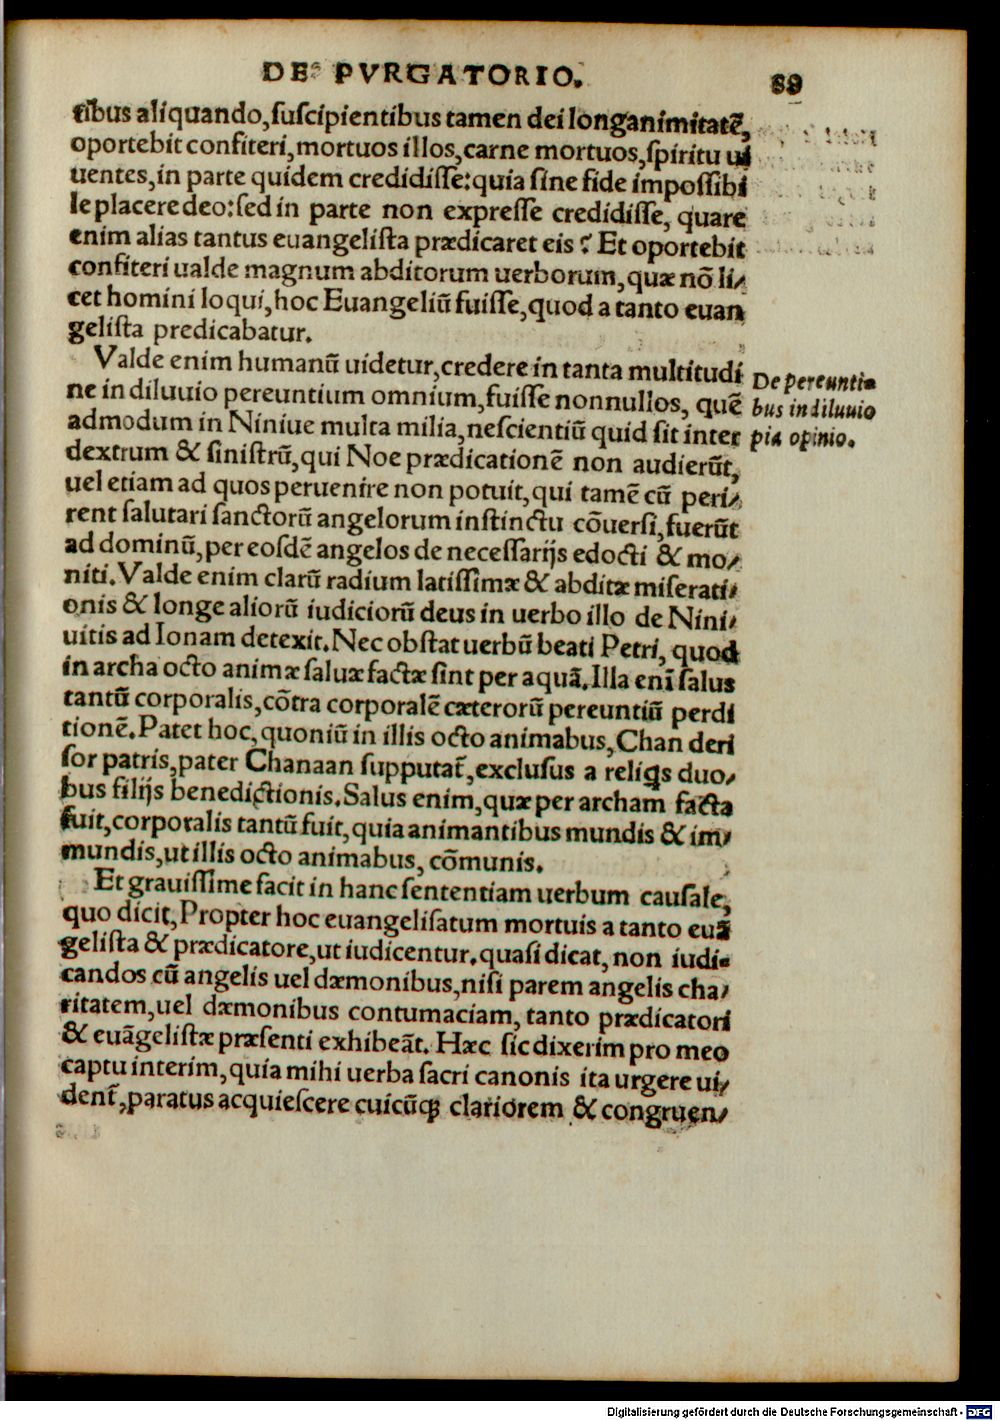 DE PVRGATORIO.
89
tibus aliquando, suscipientibus tamen dei longanimitatē,
oportebit confiteri, mortuos illos, carne mortuos, spiritu ui
uentes, in parte quidem credidisse: quia sine fide impossibi
le placere deo: sed in parte non expresse credidisse, quare
enim alias tantus euangelista prædicaret eis? Et oportebit
confiteri ualde magnum abditorum uerborum, quæ nō li/
cet homini loqui, hoc Euangeliū fuisse, quod a tanto euan
gelista predicabatur.
Valde enim humanū uidetur, credere in tanta multitudi
ne in diluuio pereuntium omnium, fuisse nonnullos, quē
admodum in Niniue multa milia, nescientiū quid sit inter
dextrum & sinistrū, qui Noe prædicationē non audierūt,
uel etiam ad quos peruenire non potuit, qui tamē cū peri/
rent salutari sanctorū angelorum instinctu cōuersi, fuerūt
ad dominū, per eosdē angelos de necessarijs edocti & mo/
niti. Valde enim clarū radium latissimæ & abditæ miserati/
onis & longe aliorū iudiciorū deus in uerbo illo de Nini/
uitis ad Ionam detexit. Nec obstat uerbū beati Petri, quod
in archa octo animæ saluæ factæ sint per aquā. Illa enī salus
tantū corporalis, cōtra corporalē cæterorū pereuntiū perdi
tionē. Patet hoc, quoniū in illis octo animabus, Chan deri
sor patris, pater Chanaan supputat̄, exclusus a reliꝗs duo/
bus filijs benedictionis. Salus enim, quæ per archam facta
fuit, corporalis tantū fuit, quia animantibus mundis & im/
mundis, ut illis octo animabus, cōmunis.
Et grauissime facit in hanc sententiam uerbum causale,
quo dicit, Propter hoc euangelisatum mortuis a tanto euā
gelista & prædicatore, ut iudicentur. quasi dicat, non iudi-
candos cū angelis uel dæmonibus, nisi parem angelis cha/
ritatem, uel dæmonibus contumaciam, tanto prædicatori
& euāgelistæ præsenti exhibeāt. Hæc sic dixerim pro meo
captu interim, quia mihi uerba sacri canonis ita urgere ui/
dent̄, paratus acquiescere cuicūꝙ clariorem & congruen/
De pereunti-
bus in diluuio
pia opinio.
Digitalisierung gefördert durch die Deutsche Forschungsgemeinschaft - DFG